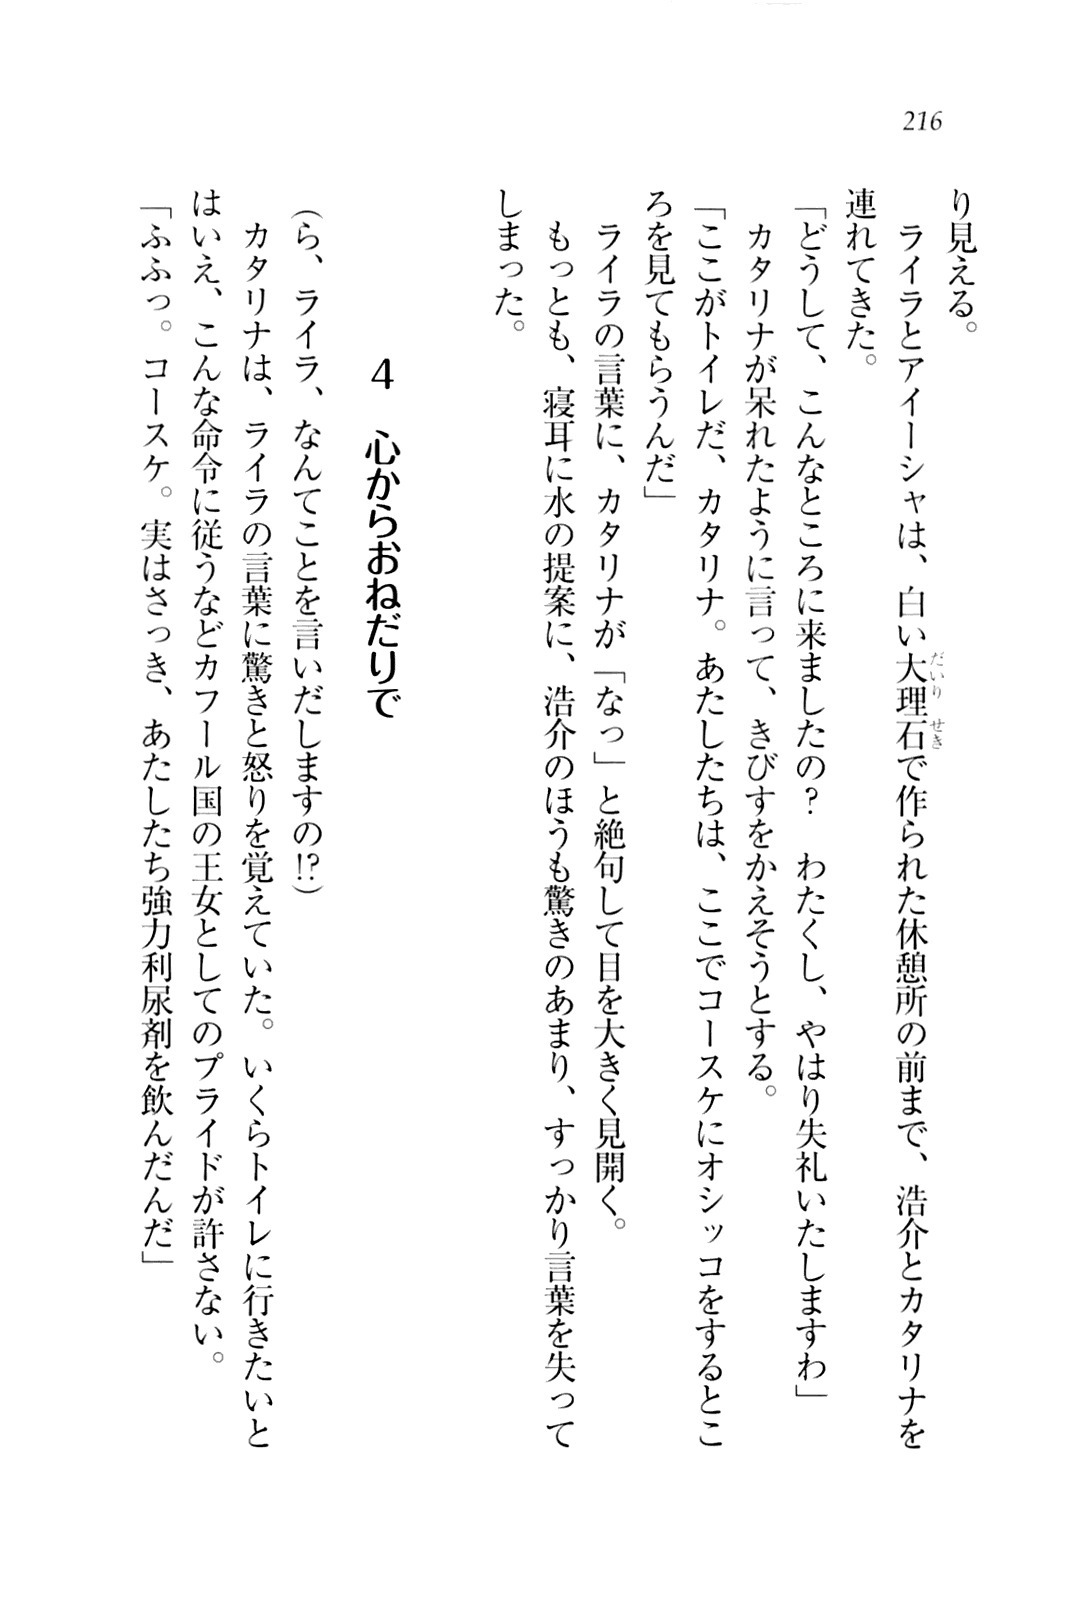 216
り見える。
　ライラとアイーシャは、白い大理石で作られた休憩所の前まで、浩介とカタリナを
連れてきた。
「どうして、こんなところに来ましたの？　わたくし、やはり失礼いたしますわ」
　カタリナが呆れたように言って、きびすをかえそうとする。
「ここがトイレだ、カタリナ。あたしたちは、ここでコースケにオシッコをするとこ
ろを見てもらうんだ」
　ライラの言葉に、カタリナが「なっ」と絶句して目を大きく見開く。
　もっとも、寝耳に水の提案に、浩介のほうも驚きのあまり、すっかり言葉を失って
しまった。
4　心からおねだりで
（ら、ライラ、なんてことを言いだしますの!?）
　カタリナは、ライラの言葉に驚きと怒りを覚えていた。いくらトイレに行きたいと
はいえ、こんな命令に従うなどカフール国の王女としてのプライドが許さない。
「ふふっ。コースケ。実はさっき、あたしたち強力利尿剤を飲んだんだ」